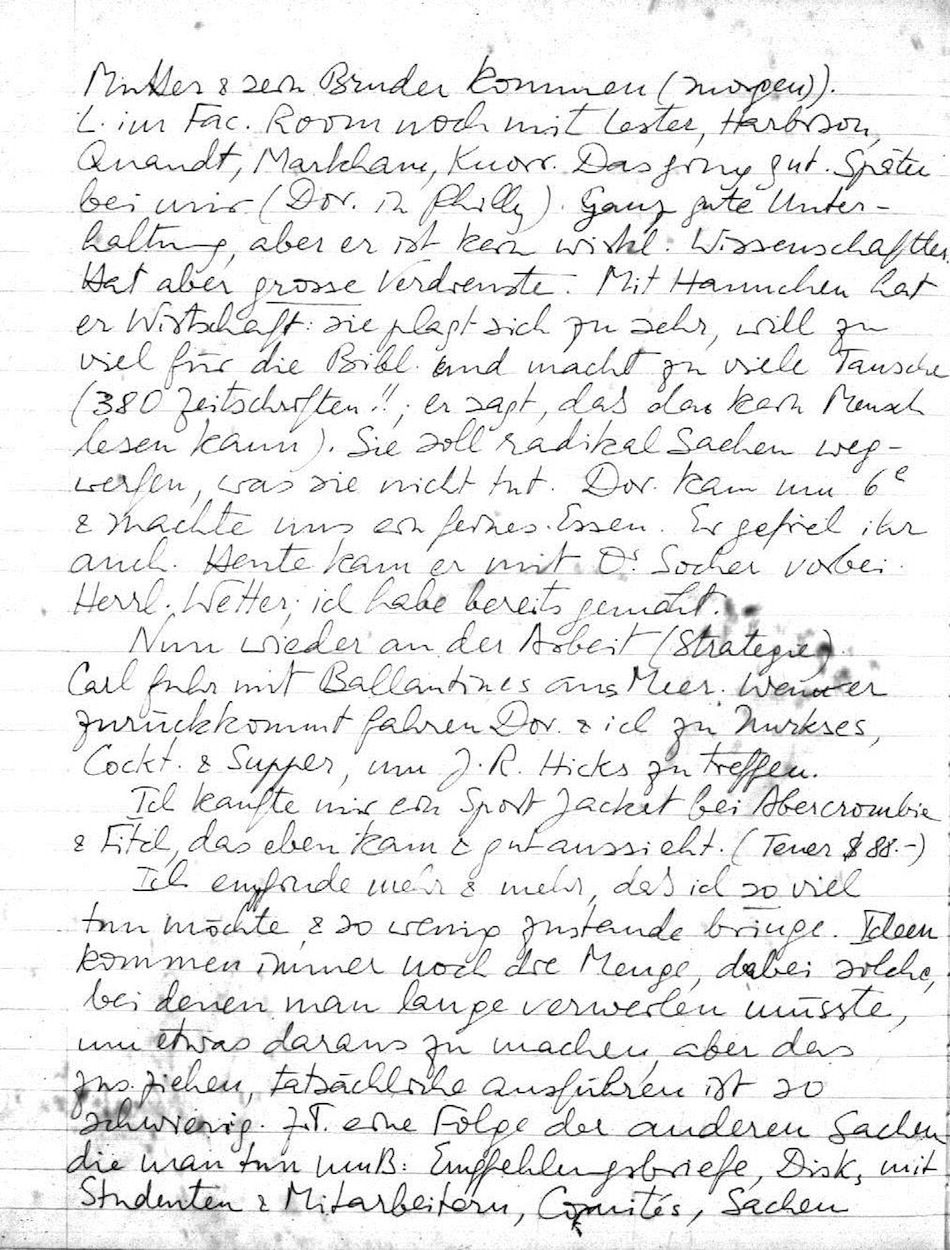 Mutter & sein Bruder kommen (morgen)).
L. im Fac. Room noch mit Lester, Harbison,
Quandt, Markham, Knorr. Das ging gut. Später
bei mir (Dor. in Philly). Ganz gute Unter-
haltung, aber er ist kein wirkl. Wissenschaftler.
Hat aber grosse Verdienste. Mit Hannchen hat
er Wirtschaft: sie plagt sich zu sehr, will zu
viel für die Bibl. und macht zu viele Tausche
(380 Zeitschriften!!, er sagt, das das kein Mensch
lesen kann). Sie soll radikal Sachen weg-
werfen, was sie nicht tut. Dor. kam um 6e
& machte uns ein feines Essen. Er gefiel ihr
auch. Heute kam er mit Dr Socher vorbei.
Herrl. Wetter; ich habe bereits gemäht.
Nun wieder an der Arbeit (Strategie)
Carl fuhr mit Ballantines ans Meer. Wenn er
zurückkommt fahren Dor. & ich zu Nurkses,
Cockt. & Supper, um J. R. Hicks zu treffen.
Ich kaufte mir ein Sport Jacket bei Abercrombie
& Fitch, das eben kam & gut aussieht. (Teuer $ 88.-)
Ich empfinde mehr & mehr, daß ich so viel
tun möchte & so wenig zustande bringe. Ideen
kommen immer noch die Menge, dabei solche,
bei denen man lange verweilen müsste,
um etwas daraus zu machen, aber das
zus. ziehen, tatsächliche ausführen ist so
schwierig. z.T. eine Folge der anderen Sachen
die man tun muß: Empfehlungsbriefe, Disk. mit
Studenten & Mitarbeitern, Comités, Sachen